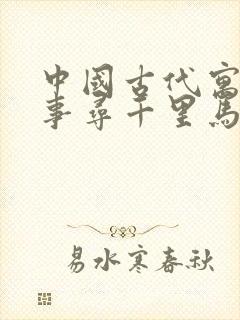 中國古代寓
事尋千里馬
易水寒春秋